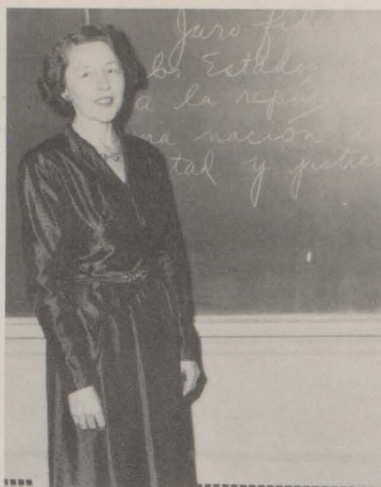 Juro fi
los Estados
a la repú
na nación
tad y justic